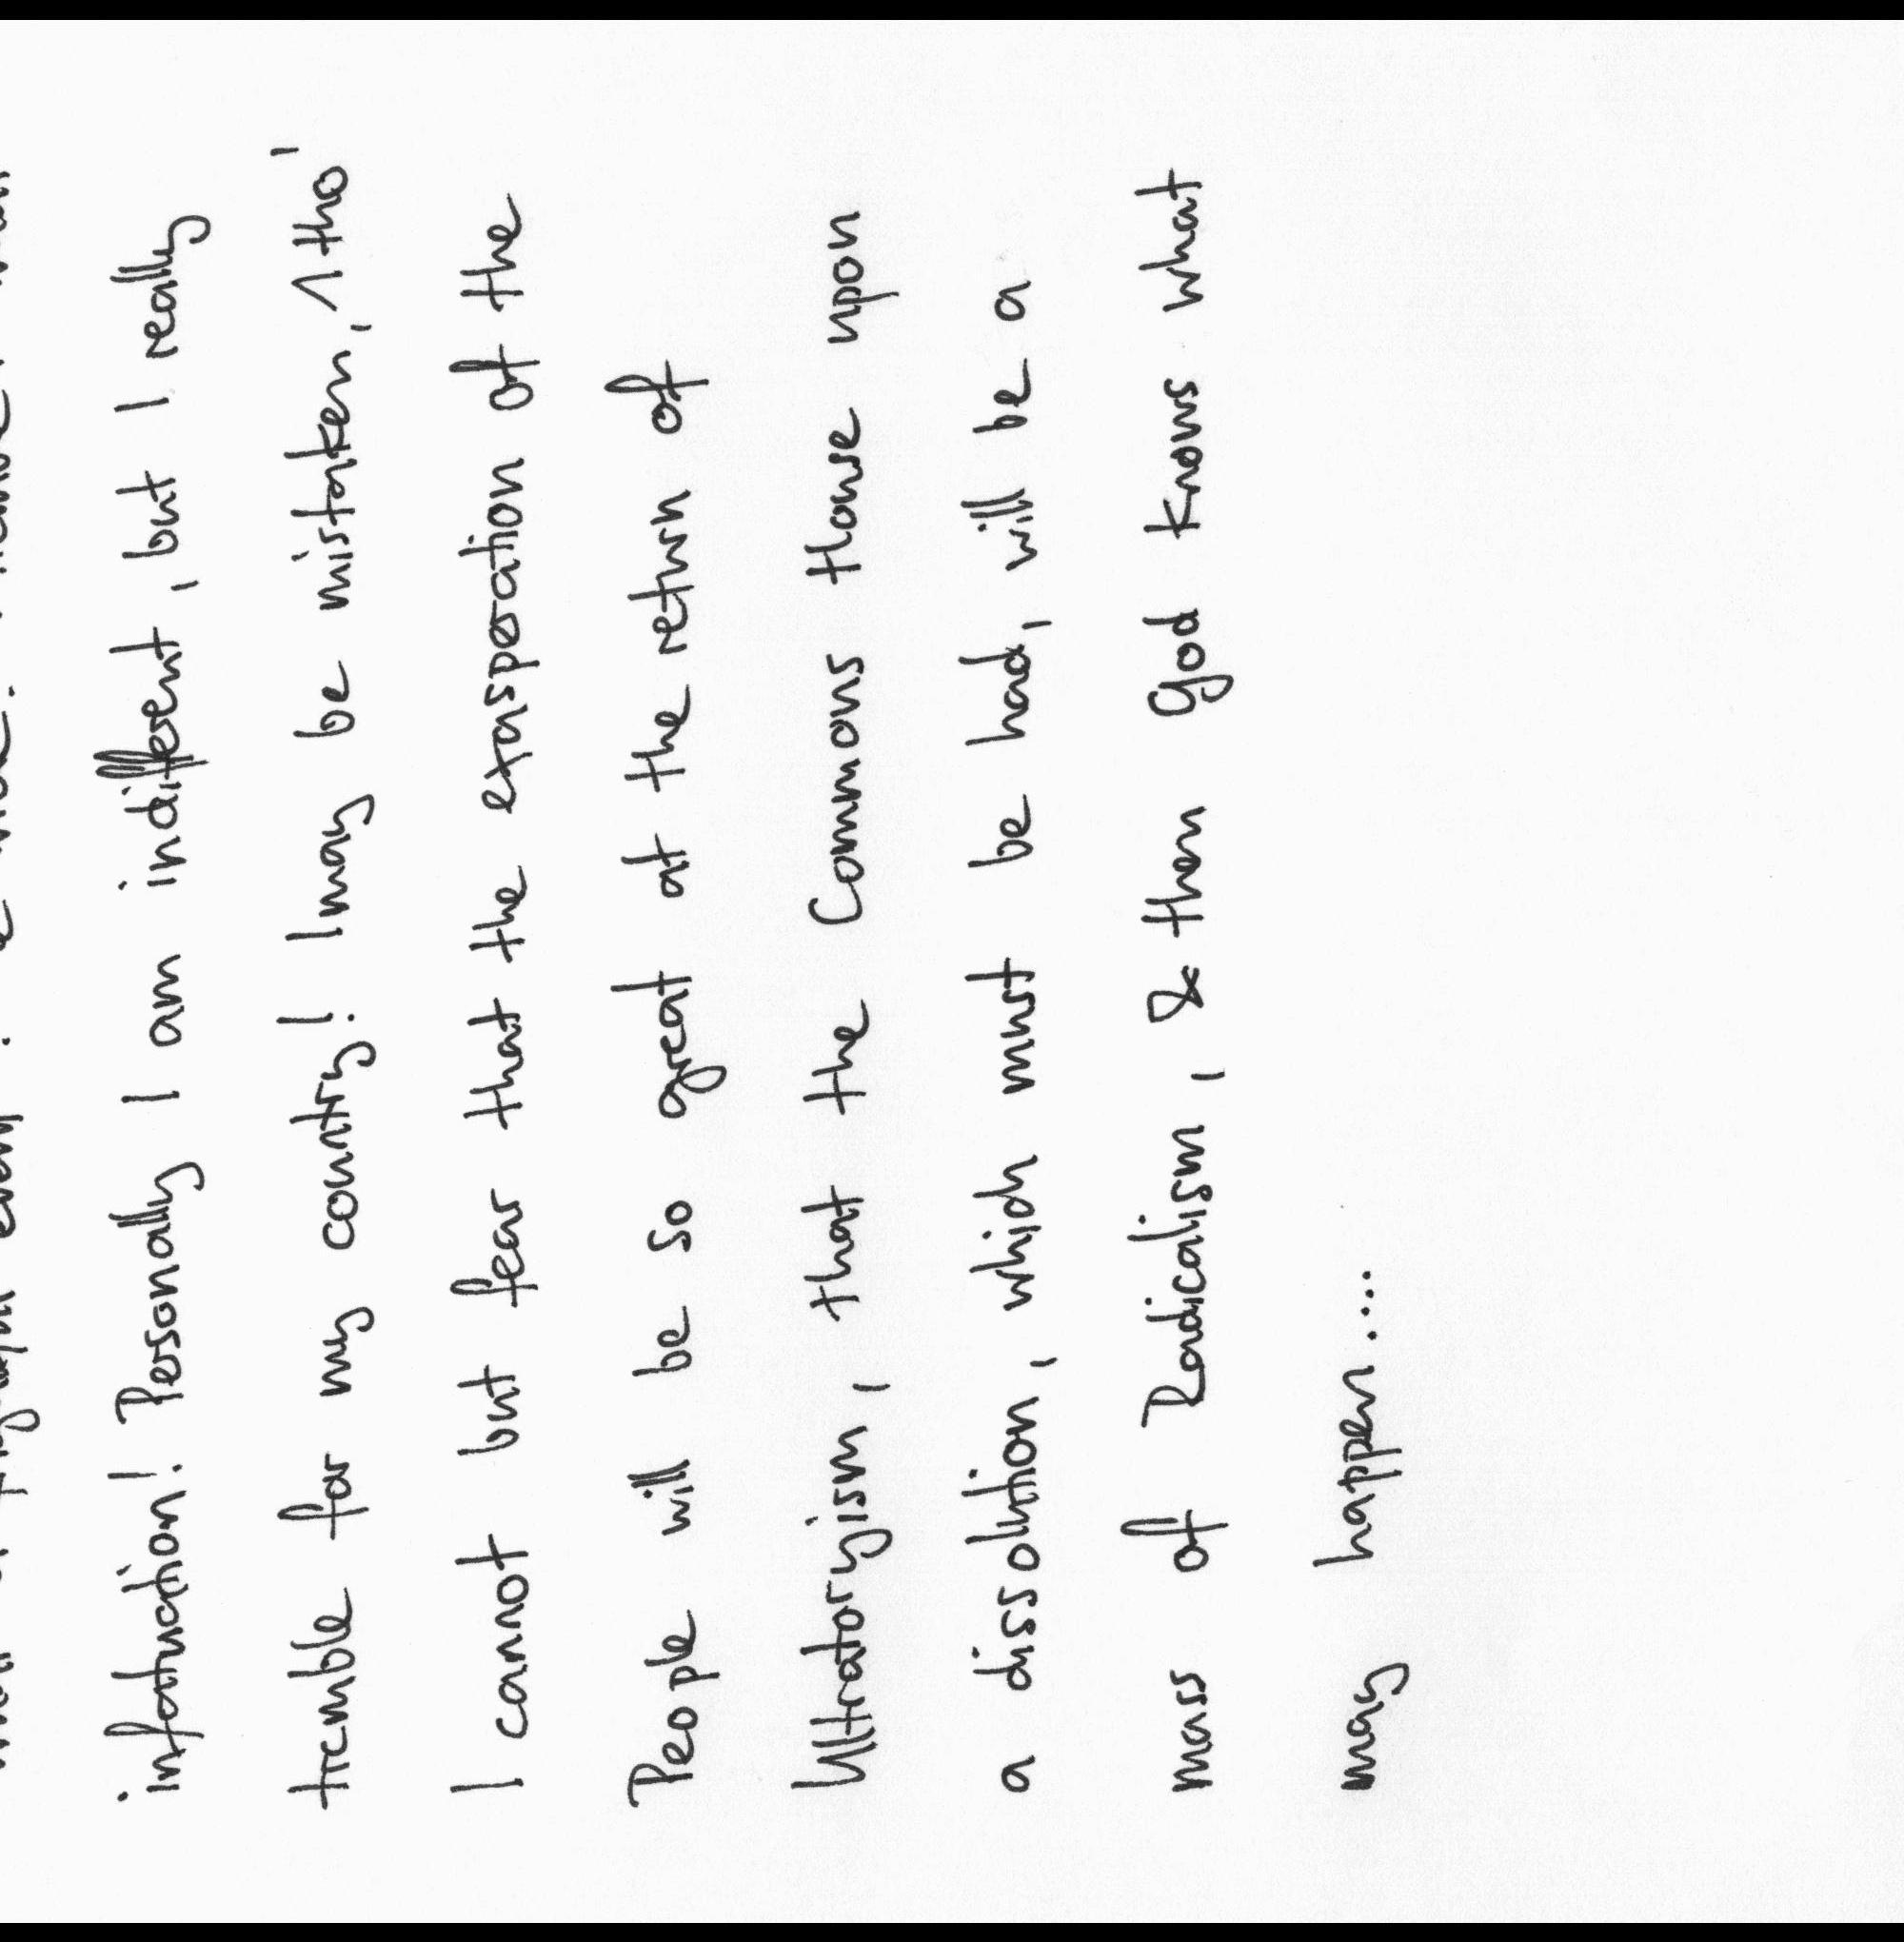 infatuation! Personally I am indifferent, but I really
tremble for my country! I may be mistaken, / tho'
I cannot but fear that the exasperation of the
People will be so great at the return of
Ultratoryism, that the Commons House upon
a dissolution, which must be had, will be a
mass of Radicalism, & then God knows what
may happen....